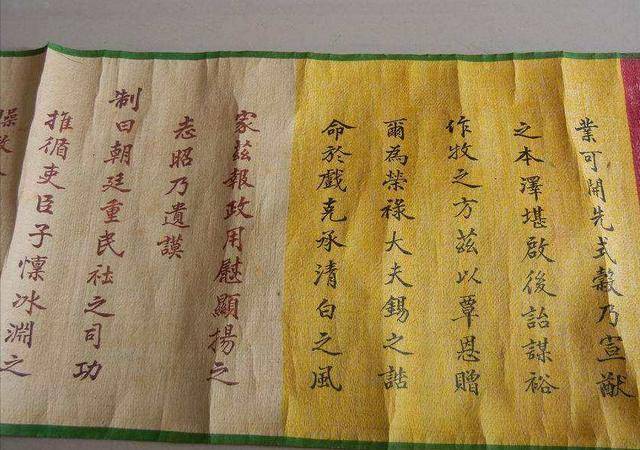 業可開先式穀乃宣猷
之本澤堪啟後詒謀裕
作牧之方茲以覃恩贈
爾為榮祿大夫錫之誥
命於戲克承清白之風
家茲報政用慰顯揚之
志昭乃遺謨
制曰朝廷重民社之司功
推循吏臣子懍冰淵之
操